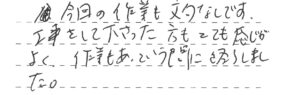 今回の作業も文句なしです。
工事をして下さった方もとても感じが
よく、作業もあっという間に終了しまし
た。